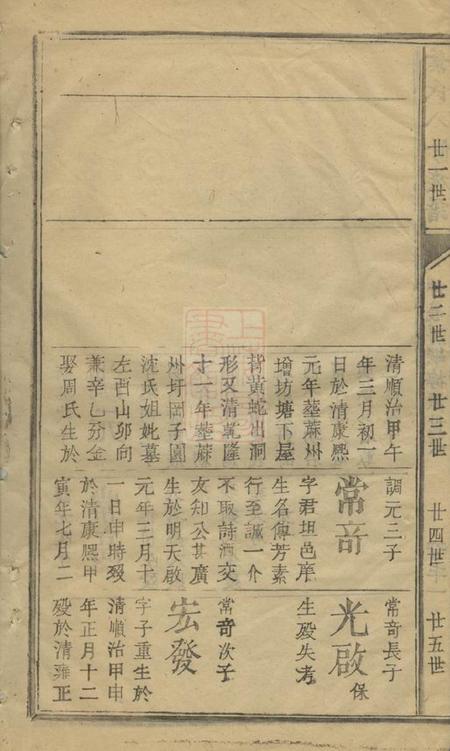 廿一世
廿二世
廿三世
廿四世
廿五世
清順治甲午
年三月初一
日於清康熙
元年塟蔴州
增坊塘下屋
背黄蛇出洞
形又清乾隆
十一年塟蔴
州坪岡子園
沈氏姐妣墓
左酉山卯向
兼辛乙分金
娶周氏生於
調元三子
常竒
字君坦邑庠
生名傳芳素
行至誠一介
不取詩酒交
友知公甚廣
生於明天啟
元年三月十
一日申時殁
於清康熙甲
寅年七月二
常竒長子
光啟
保
生殁失考
常竒次子
宏發
字子重生於
清順治甲申
年正月十二
殁於清雍正